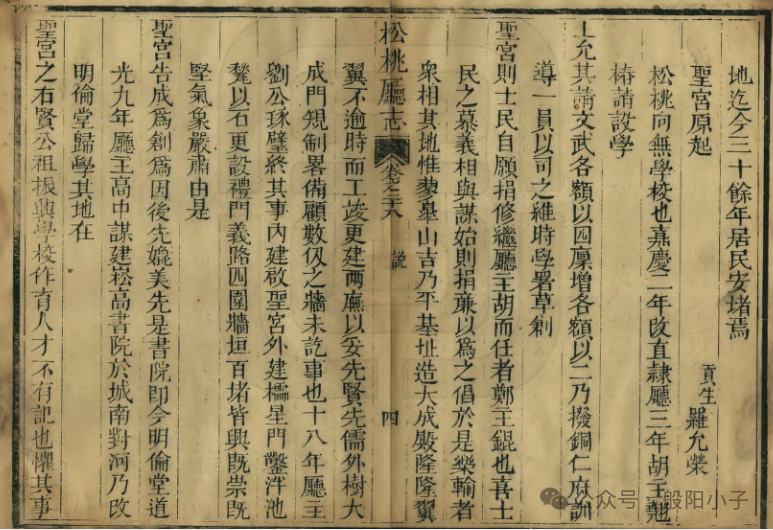 地迄今三十餘年居民安堵焉
聖宮原起
貢生羅允榮
松桃向無學校也嘉慶二年改直隸廳三年胡王
椿請設學
上允其請文武各額以四廩增各額以二乃撥銅仁府訓
導一員以司之維時學署草創
聖宮則士民自願捐修繼廳主胡而任者鄭王錕也喜士
民之慕義相與謀始則捐亷以為之倡於是樂輸者
衆相其地惟蓼臯山吉乃平基址造大成殿隆隆翼
松桃廳志
卷之二八
説
四
翼不逾時而工竣更建兩廡以妥先賢先儒外樹大
成門規制畧備顧數仞之牆未訖事也十八年廳主
劉公琢璧終其事內建啟聖宮外建櫺星門鑿泮池
甃以石更設禮門義路四圍牆垣百堵皆興既崇既
堅氣象嚴肅由是
聖宮告成為創為因後先媲美先是書院即今明倫堂道
光九年廳主高中謀建崧高書院於城南對河乃改
明倫堂歸學其地在
聖宮之右賢公祖振興學校作育人才不有記也懼其事
公众号·般阳小子